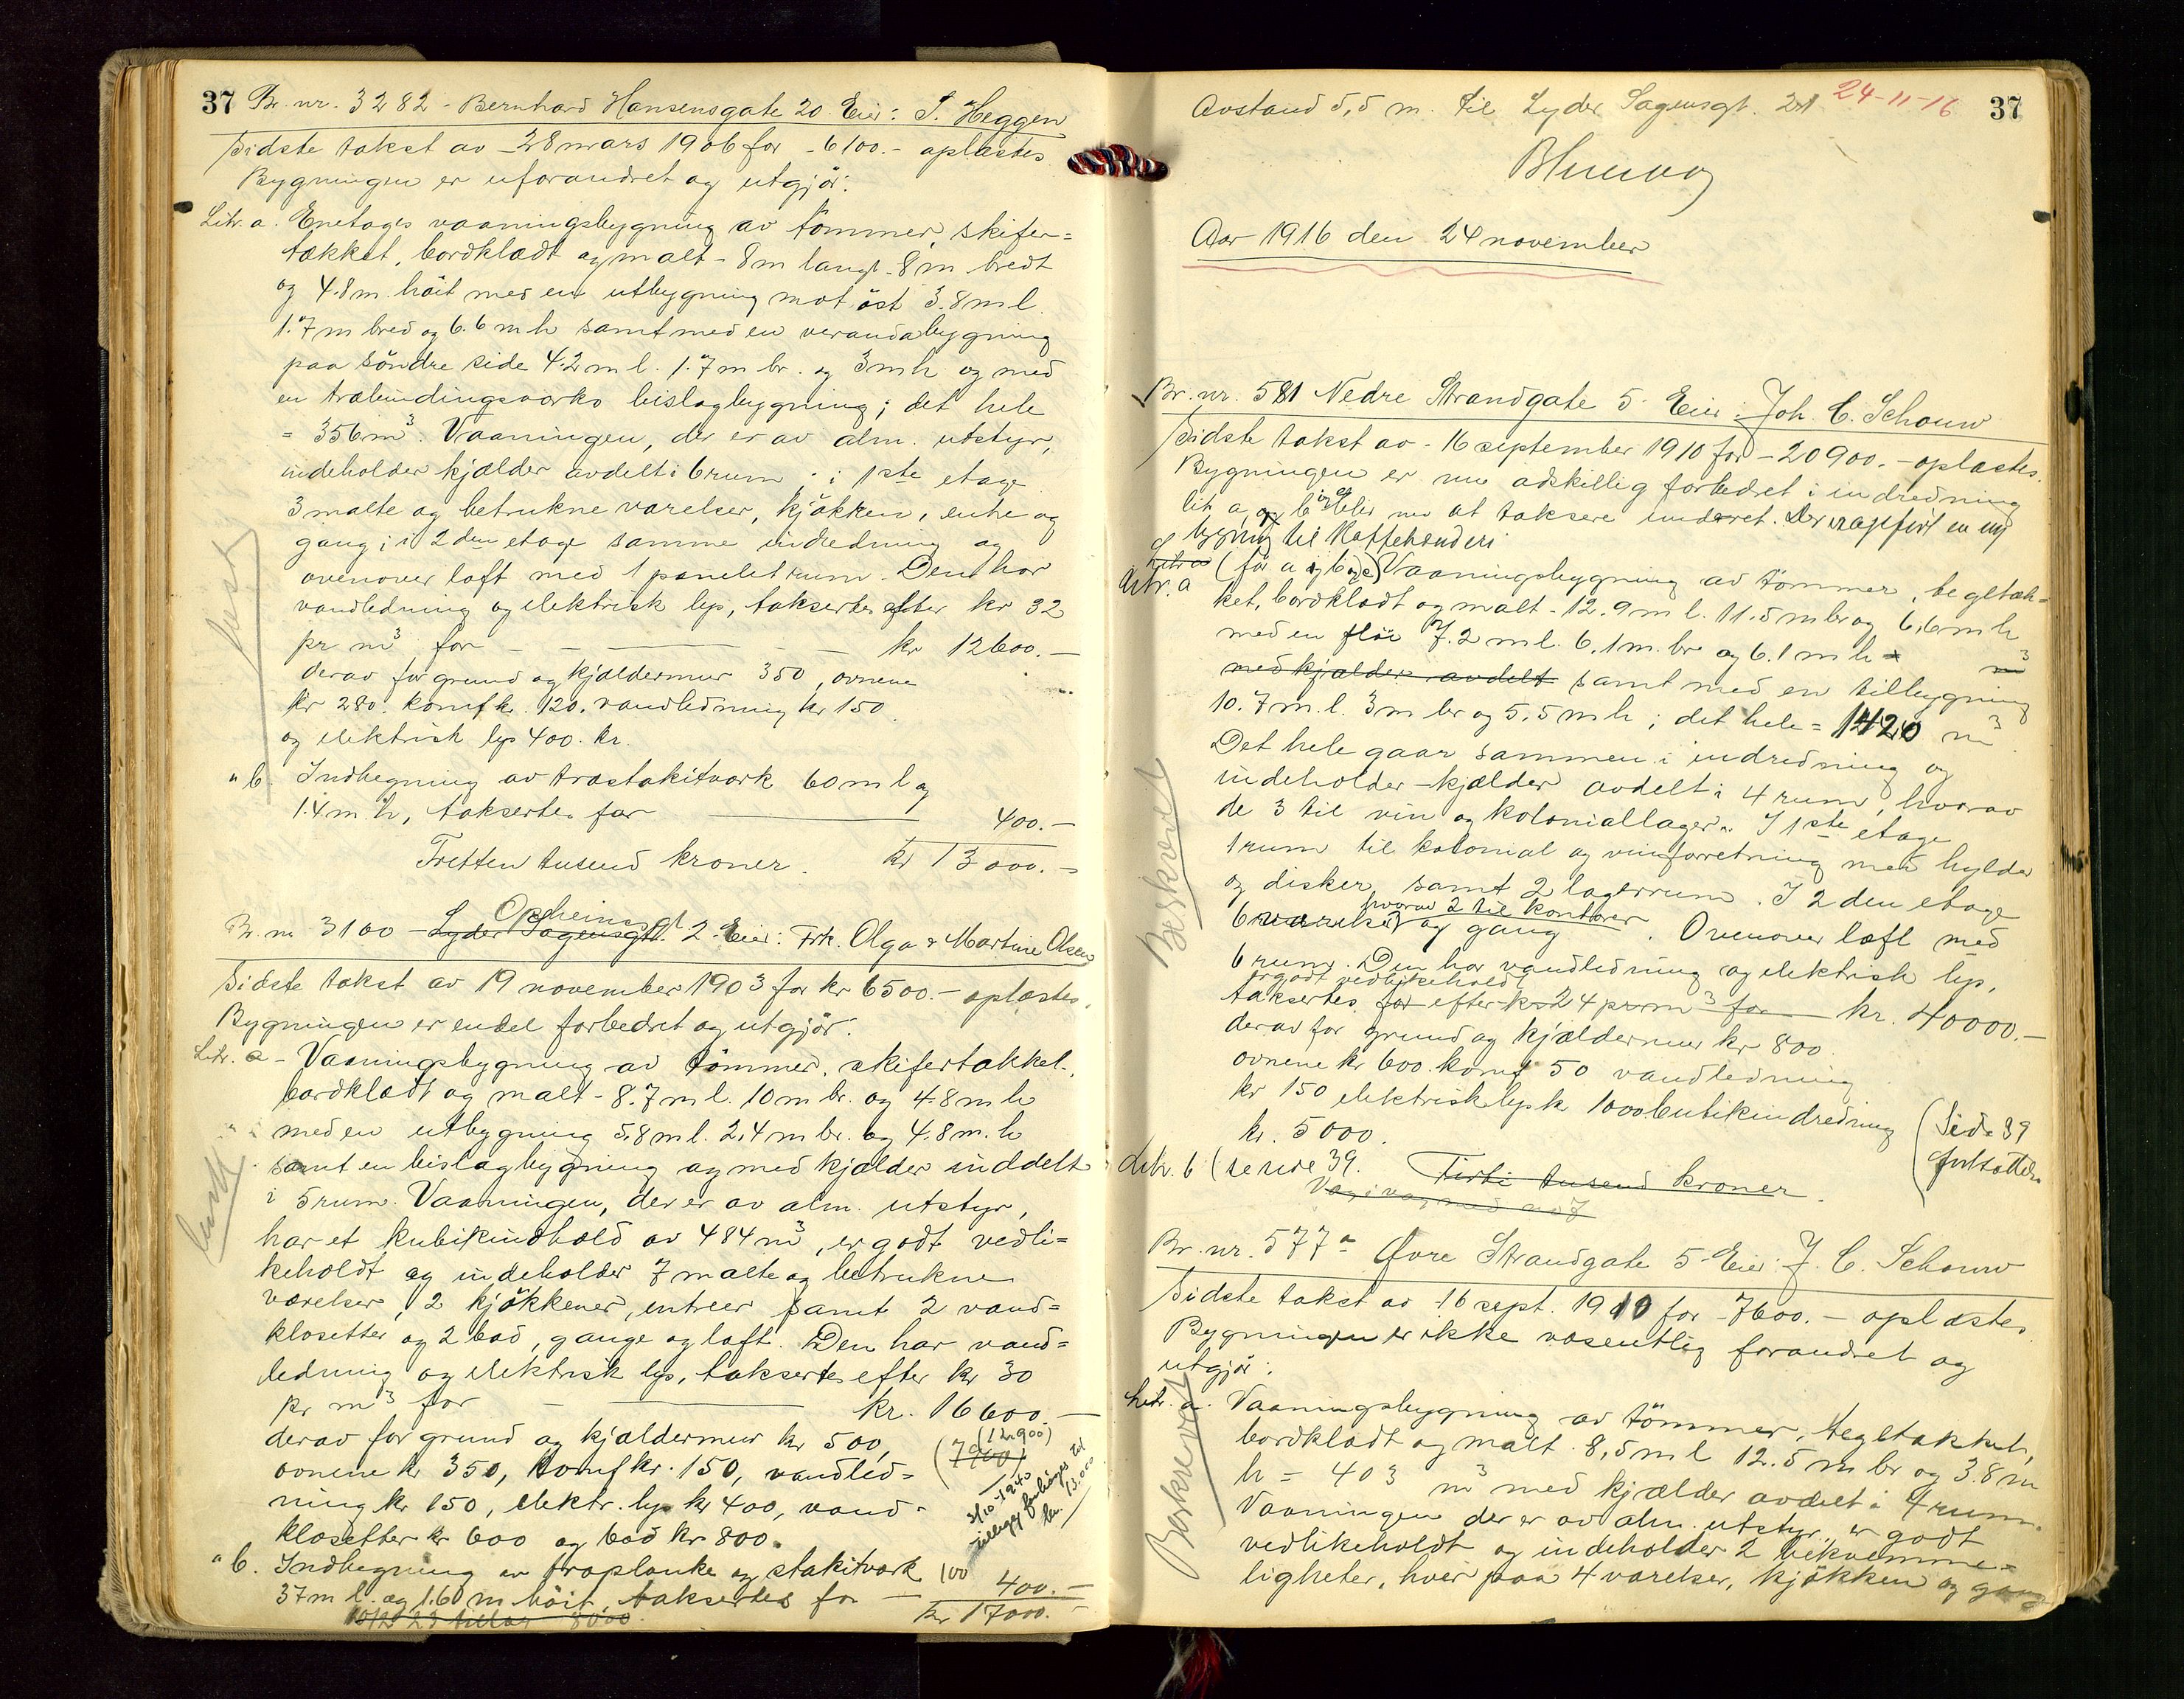 37 Br. nr. 3282 - Bernhard Hansensgate 20 Eier: S. Heggen
Sidste takst av 28 mars 1906 for - 6100.- oplæstes
Bygningen er uforandret og utgjör:
Litr. a. Enetages vaaningsbygning av tömmer, skifer=
tækket, bordklædt og malt - 8 m langt - 8 m bredt
og 4.8 m. höit med en utbygning mot öst 3.8 m l.
1.7 m bred og 6.6 m h samt med en verandabygning
paa söndre side 4.2 m l. 1.7 m br. og 3 m h og med
en træbindingsværks bislagbygning; det hele
= 356 m³. Vaaningen, der er av alm. utstyr,
indeholder kjælder avdelt i 6 rum; i 1ste etage
3 malte og betrukne værelser, kjökken, entre og
gang; i 2den etage samme indredning og
ovenover loft med 1 panelet rum. Den har
vandledning og elektrisk lys, taksertes efter kr 32
pr m³ for - - - kr 12600.-
derav for grund og kjældermur 350, ovnene
kr 280. komf kr. 120. vandledning kr 150
og elektrisk lys 400. kr.
" b. Indhegning av træstakitværk 60 m l og
1.4 m. h, taksertes for 400.-
Tretten tusend kroner. kr 13000.-
besk
Opheimsgt
Br. nr 3100 - Lyder Sagensgt. 2. Eier: Frk. Olga & Martine Olsen
Sidste takst av 19 november 1903 for kr 6500.- oplæstes.
Bygningen er endel forbedret og utgjör:
Litr. a - Vaaningsbygning av tömmer, skifertækket,
bordklædt og malt - 8.7 m l. 10 m br. og 4.8 m h
med en utbygning 5,8 m l. 2,4 m br. og 4.8 m. h
samt en bislagbygning og med kjælder inddelt
i 5 rum. Vaaningen, der er av alm. utstyr,
har et kubikindhold av 484 m³, er godt vedli=
keholdt og indeholder 7 malte og betrukne
værelser, 2 kjökkener, entreer samt 2 vand=
klosetter og 2 bad, gange og loft. Den har vand=
ledning og elektrisk lys, taksertes efter kr 30
pr m³ for - kr. 16600.-
derav for grund og kjældermur kr 500, (12.900)
ovnene kr 350, komf kr. 150, vandled= (7900)
ning kr 150, elektr. lys kr 400, vand=
klosetter kr 600 og bad kr 800.
3/10-1940
kr. 13.000
" b. Indhegning av træplanke og stakitværk 100 400.-
37 m l. og 1.60 m höit, taksertes for - kr 17000.-
Avstand 5,5 m. til Lyder Sagensgt. 21 24-11-16 37
Aar 1916 den 24 november
Br. nr. 581 Nedre Strandgate 5 - Eier: Joh. C. Schouw
Sidste takst av - 16 september 1910 for - 20900.- oplæstes.
Bygningen er nu adskillig forbedret i indredning
lit. a og b blir nu at taksere under et. Der er opfört en ny
bygning til Kaffebrænderi
Litr. a (för a og b og c) Vaaningsbygning av tömmer, tegltæk=
ket, bordklædt og malt - 12.9 m l. 11.5 m br og 6,6 m h
med en flöi 7.2 m l. 6.1 m. br og 6.1 m h m³
med kjælder avdelt samt med en tilbygning
10.7 m. l. 3 m br og 5,5 m h; det hele = 1420 m³.
Det hele gaar sammen i indredning og
indeholder - kjælder avdelt i 4 rum, hvorav
de 3 til vin og koloniallager. I 1ste etage
1 rum til kolonial og vinforretning med hylder
og disker, samt 2 lagerrum. I 2den etage
hvorav 2 til kontorer
6 værelser og gang. Ovenover loft med
6 rum. Den har vandledning og elektrisk lys,
er godt vedlikeholdt
taksertes for efter kr 24 pr m³ for kr. 40000.-
derav for grund og kjældermur kr 800
ovnene kr 600. komf 50 vandledning
kr 150 elektrisk lys kr 1000 butikindredning
kr. 5000. (Side 39
fortsættes
Litr. b (se side 39. Firti tusend kroner.
Beskrevet
Br. nr. 577a Övre Strandgate 5 - Eier: J. C. Schouw
Sidste takst av 16 sept. 1910 for - 7600.- oplæstes
Bygningen er ikke væsentlig forandret og
utgjör:
Litr. a. Vaaningsbygning av tömmer, tegltækket,
bordklædt og malt. 8,5 m l 12.5 m br og 3.8 m
h = 403 m³ med kjælder avdelt i 4 rum.
Vaaningen der er av alm. utstyr, er godt
vedlikeholdt og indeholder 2 bekvemme=
ligheter, hver paa 4 værelser, kjökken og gang
Beskrevet